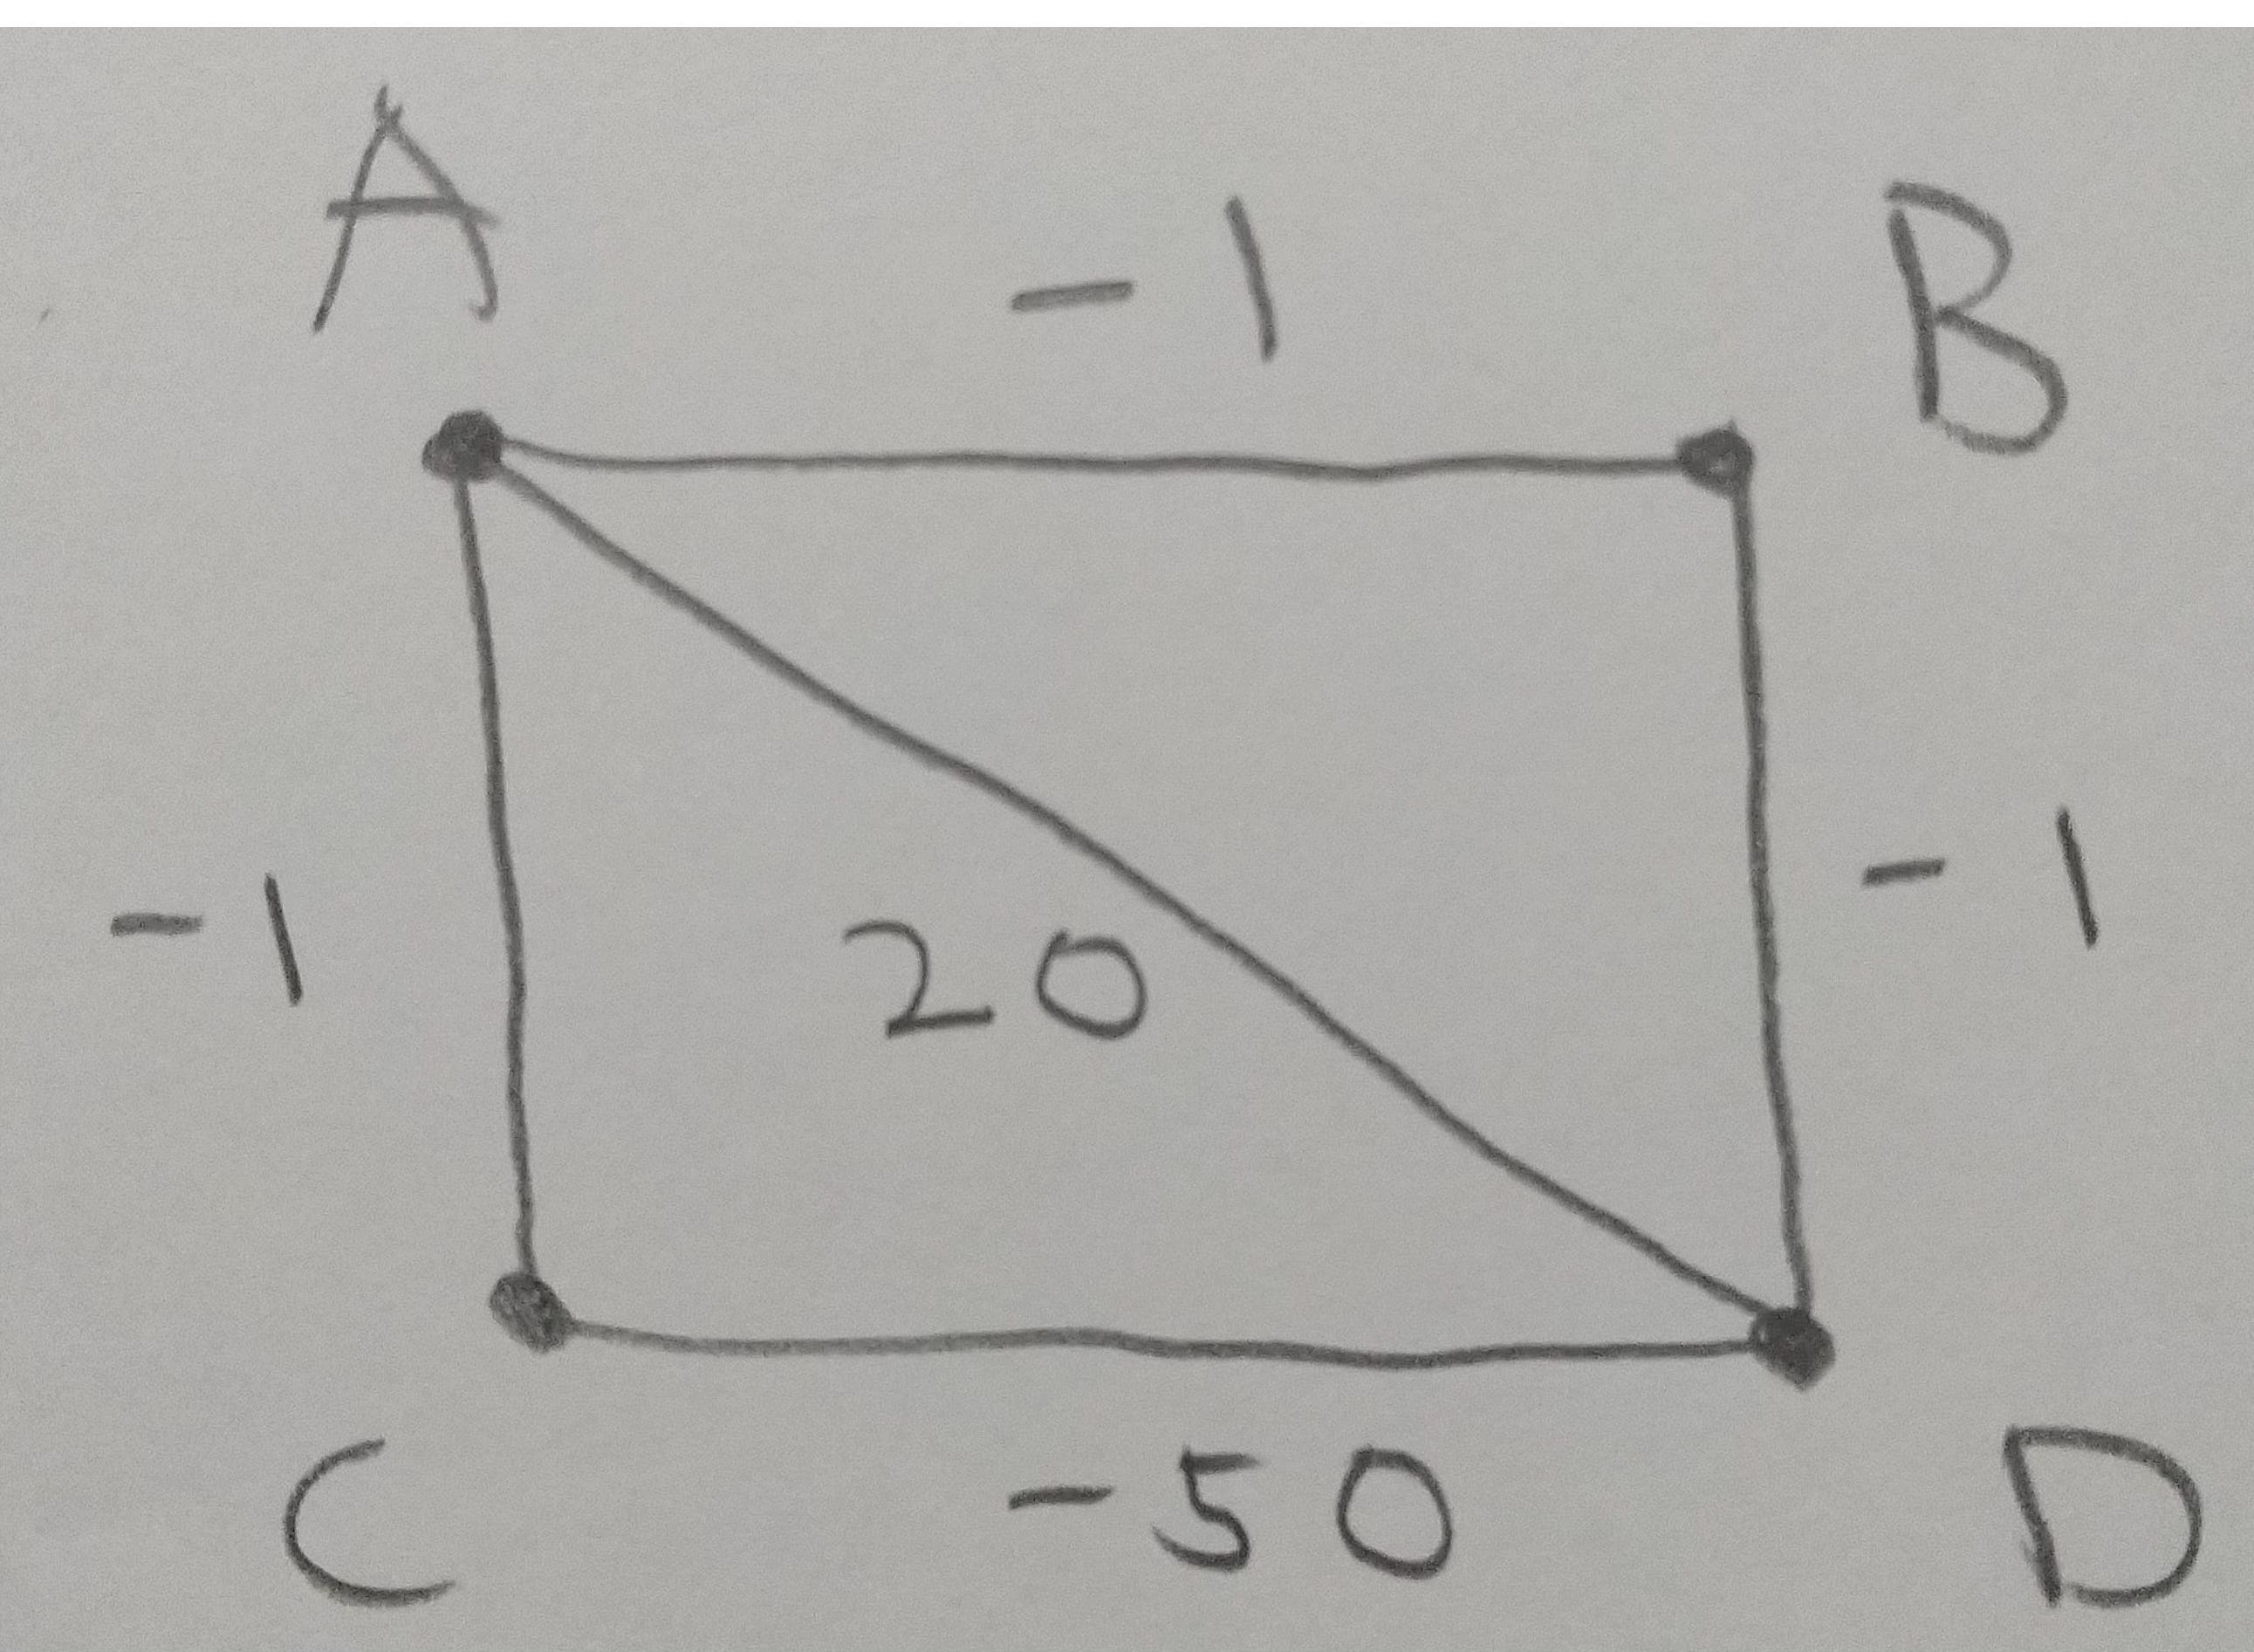 A
-1
B
-1
20
-1
C
-50
D